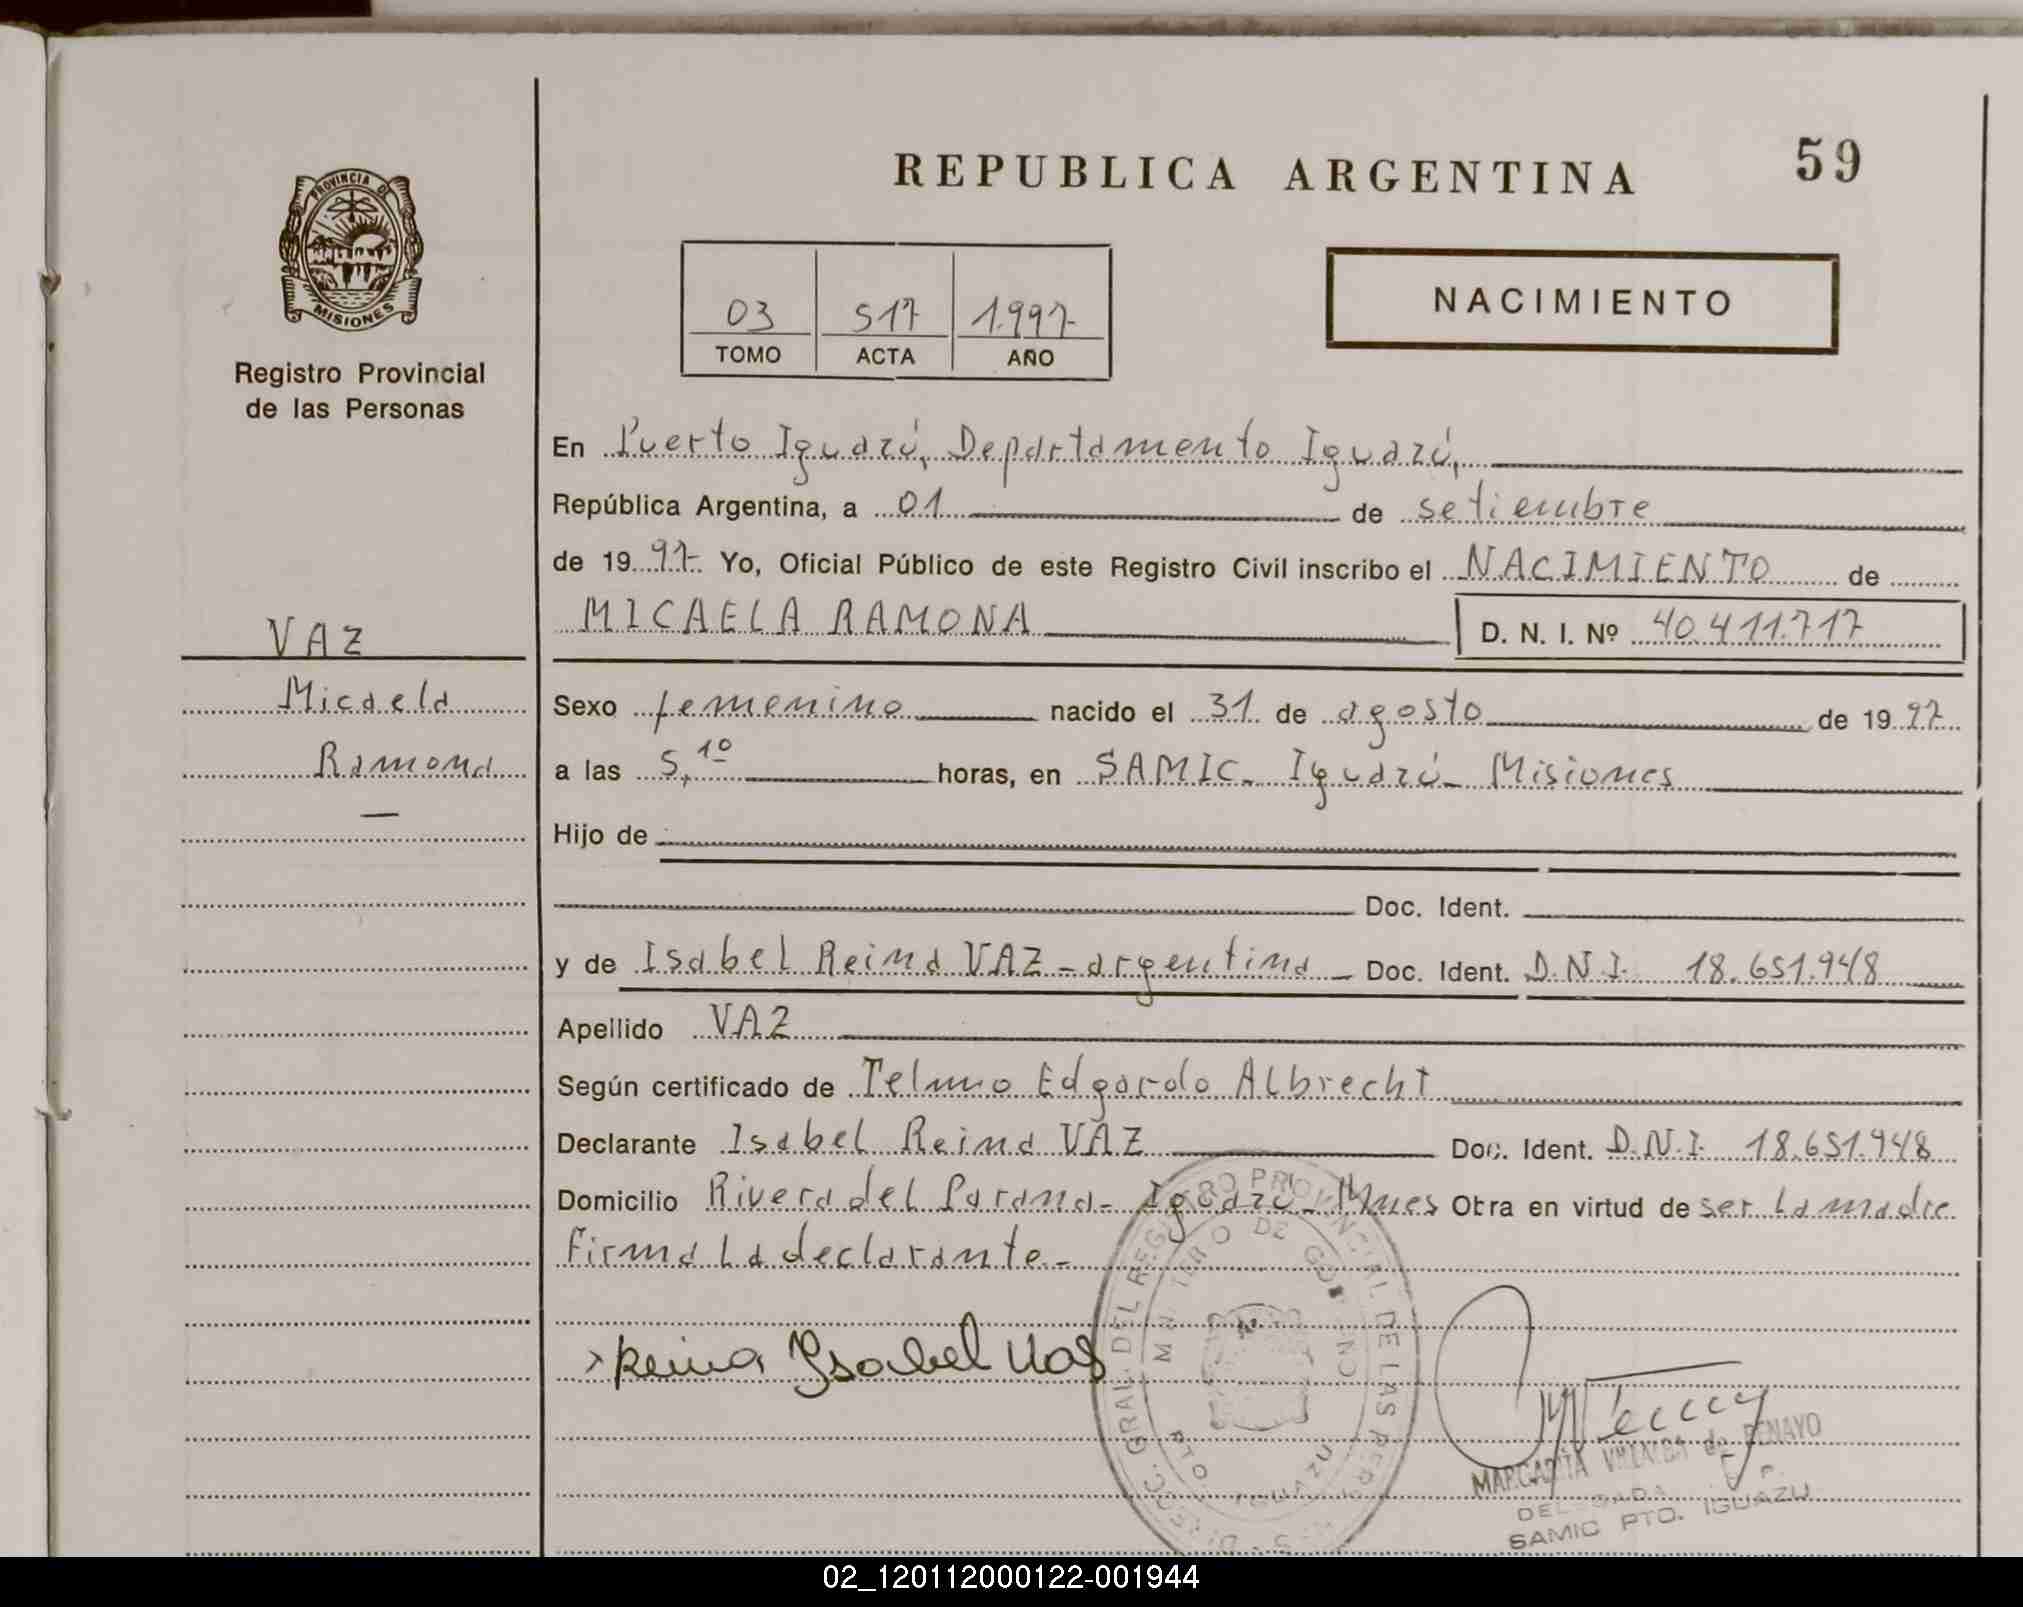 REPUBLICA ARGENTINA
59
PROVINCIA DE
MISIONES
Registro Provincial
de las Personas
03 517 1.997
TOMO ACTA AÑO
NACIMIENTO
En Puerto Iguazú, Departamento Iguazú,
República Argentina, a 01 de setiembre
de 1997 Yo, Oficial Público de este Registro Civil inscribo el NACIMIENTO de
MICAELA RAMONA D. N. I. Nº 40.411.717
VAZ
Micaela
Ramona
—
Sexo femenino nacido el 31 de agosto de 1997
a las 5,10 horas, en SAMIC - Iguazú - Misiones
Hijo de
Doc. Ident.
y de Isabel Reina VAZ - argentina - Doc. Ident. D.N.I. 18.651.948
Apellido VAZ
Según certificado de Telmo Edgardo Albrecht
Declarante Isabel Reina VAZ Doc. Ident. D.N.I. 18.651.948
Domicilio Rivera del Parana - Iguazú - Mnes Obra en virtud de ser la madre
Firma la declarante.-
Reina Ysabel Vas
DIREC. GRAL. DEL REGISTRO PROVINCIAL DE LAS PERS
MINISTERIO DE GOBIERNO
PTO. IGUAZU
MARGARITA de PENAYO
DELEGADA
SAMIC PTO. IGUAZU
02_120112000122-001944